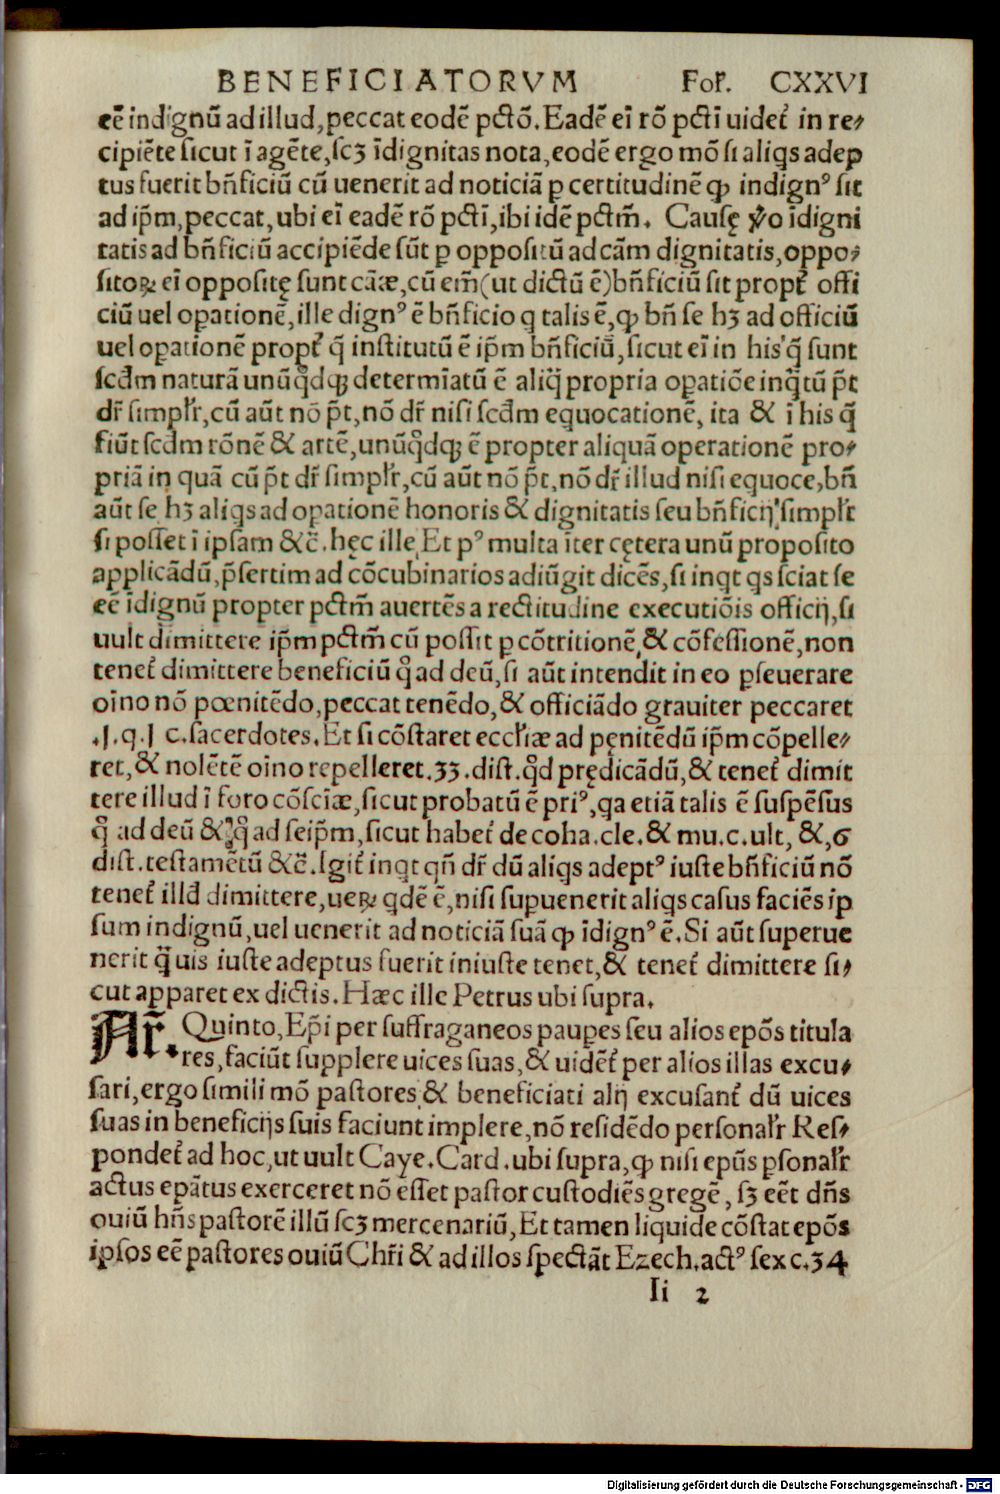 BENEFICIATORVM Foł. CXXVI
eē indignū ad illud, peccat eodē pctō. Eadē eī rō pctī uidet᷑ in re⸗
cipiēte sicut ī agēte, scꝫ īdignitas nota, eodē ergo mō si aliqͥs adep
tus fuerit bn̄ficiū cū uenerit ad noticiā ꝑ certitudinē ꝙ indignꝰ sit
ad ip̄m, peccat, ubi eī eadē rō pctī, ibi idē pctm̄. Causę ꝟo īdigni
tatis ad bn̄ficiū accipiēde sūt ꝑ oppositū ad cām dignitatis, oppo⸗
sitoꝝ eī oppositę sunt cāæ, cū em̄ (ut dictū ē) bn̄ficiū sit propt᷑ offi
ciū uel oꝑationē, ille dignꝰ ē bn̄ficio q̇ talis ē, ꝙ bn̄ se hꝫ ad officiū
uel oꝑationē propt᷑ q̄ institutū ē ip̄m bn̄ficiū, sicut eī in his q̄ sunt
scd̄m naturā unūqͦdqꝫ determīatū ē aliq̄ propria oꝑatiōe inqͣtū p̄t
dr̄ simpłr, cū aūt nō p̄t, nō dr̄ nisi scd̄m equocationē, ita & ī his q̄
fiūt scd̄m rōnē & artē, unūqͦdqꝫ ē propter aliquā operationē pro⸗
priā in quā cū p̄t dr̄ simpłr, cū aūt nō p̄t, nō dr̄ illud nisi equoce, bn̄
aūt se hꝫ aliqͥs ad oꝑationē honoris & dignitatis seu bn̄ficij simpłr
si posset ī ipsam &c̄. hęc ille, Et pꝰ multa īter cętera unū proposito
applicādū, p̄sertim ad cōcubinarios adiūgit dicēs, si inqͥt qͥs sciat se
eē īdignū propter pctm̄ auertēs a rectitudine executiōis officij, si
uult dimittere ip̄m pctm̄ cū possit ꝑ cōtritionē, & cōfessionē, non
tenet᷑ dimittere beneficiū qͦ ad deū, si aūt intendit in eo ꝑseuerare
oīno nō pœnitēdo, peccat tenēdo, & officiādo grauiter peccaret
.J. q. J c. sacerdotes. Et si cōstaret eccłiæ ad pęnitēdū ip̄m cōpelle⸗
ret, & nolētē oīno repelleret. 33. dist. qͦd prędicādū, & tenet᷑ dimit
tere illud ī foro cōsciæ, sicut probatū ē priꝰ, qa etiā talis ē suspēsus
qͦ ad deū & qͦ ad seip̄m, sicut habet᷑ de coha. cle. & mu. c. ult, &, 6
dist. testamētū &c̄. Igit᷑ inqͥt qn̄ dr̄ dū aliqͥs adeptꝰ iuste bn̄ficiū nō
tenet᷑ illd̄ dimittere, ueꝝ qͥdē ē, nisi supuenerit aliqͥs casus faciēs ip
sum indignū, uel uenerit ad noticiā suā ꝙ īdignꝰ ē. Si aūt superue
nerit q̄uis iuste adeptus fuerit iniuste tenet, & tenet᷑ dimittere si⸗
cut apparet ex dictis. Hæc ille Petrus ubi supra.
Ar̄. Quinto, Ep̄i per suffraganeos pauꝑes seu alios epōs titula
res, faciūt supplere uices suas, & uidēt᷑ per alios illas excu⸗
sari, ergo simili mō pastores & beneficiati alij excusant᷑ dū uices
suas in beneficijs suis faciunt implere, nō residēdo personałr Res⸗
pondet᷑ ad hoc, ut uult Caye. Card. ubi supra, ꝙ nisi epūs ꝑsonałr
actus epātus exerceret nō esset pastor custodiēs gregē, sꝫ eēt dn̄s
ouiū hn̄s pastorē illū scꝫ mercenariū, Et tamen liquide cōstat epōs
ipsos eē pastores ouiū Chr̄i & ad illos spectāt Ezech. actꝰ sex c. 34
Ii 2
Digitalisierung gefördert durch die Deutsche Forschungsgemeinschaft - DFG